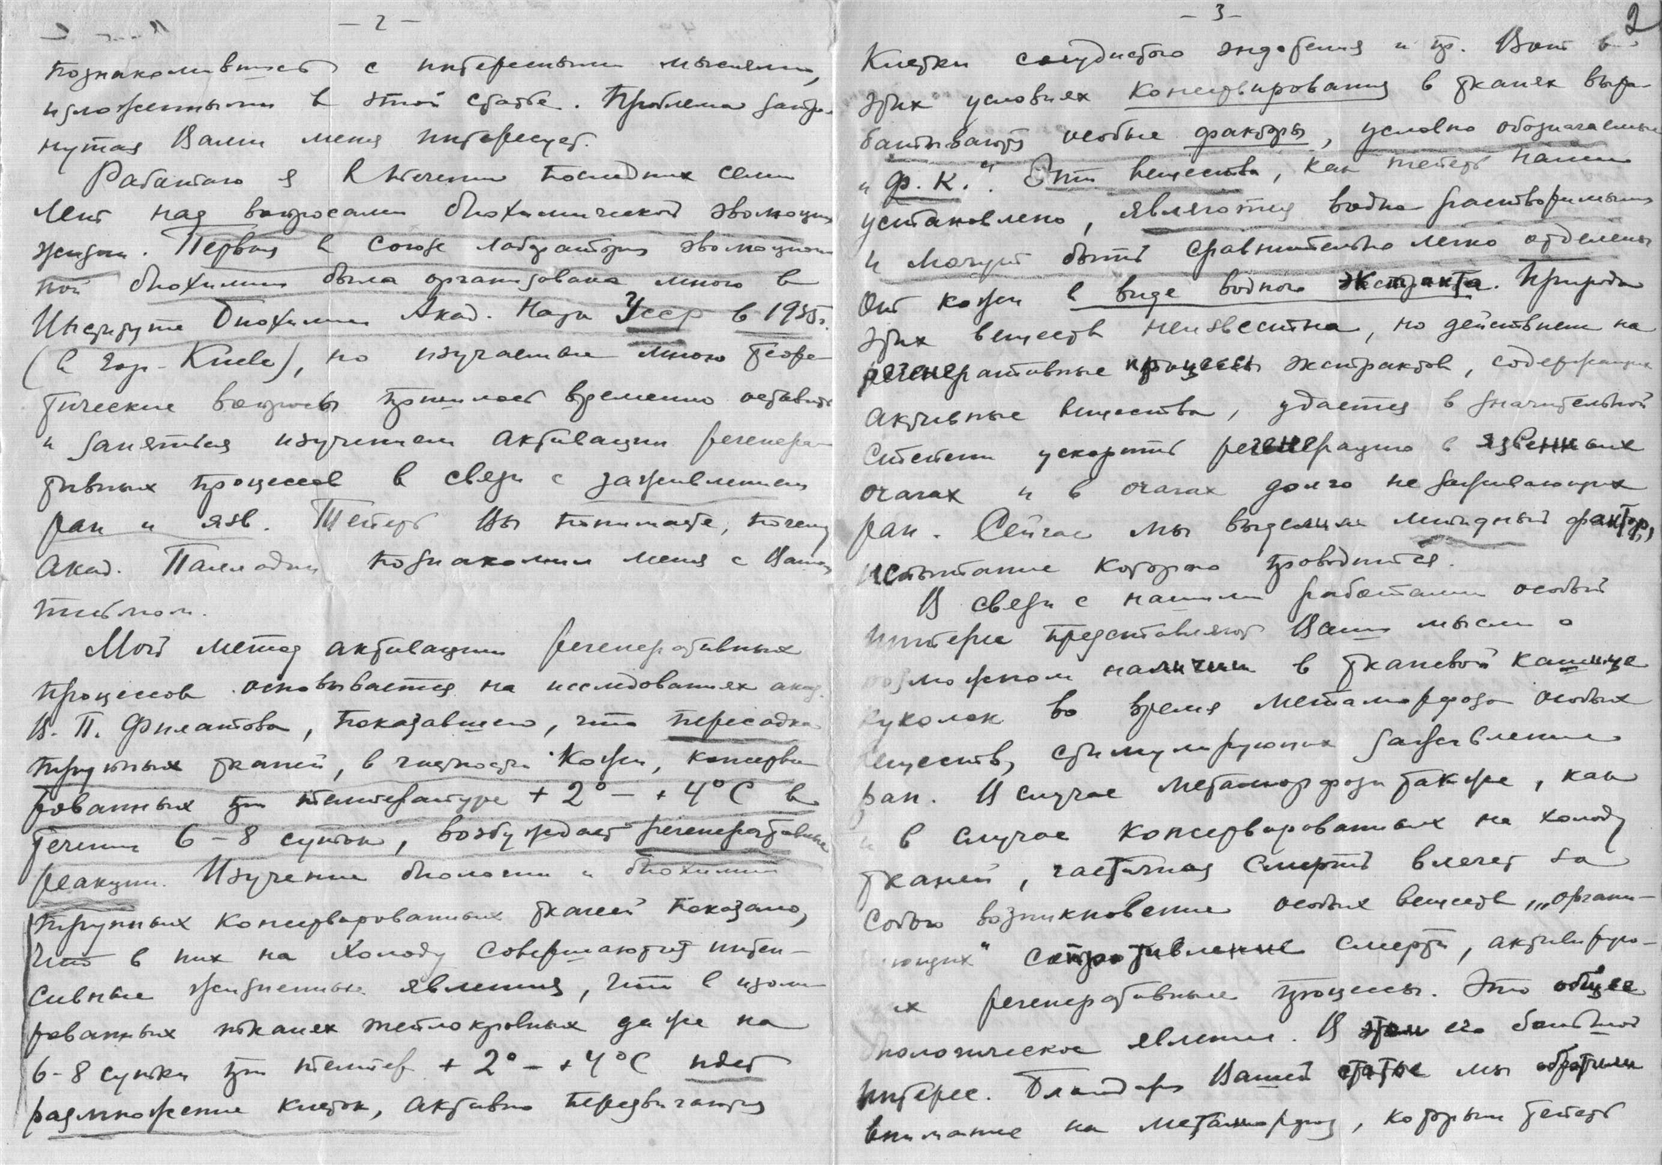 – 2 –
познакомившись с интересными мыслями,
изложенными в этой статье. Проблема затро-
нутая Вами меня интересует.
Работаю я в течении последних семи
лет над вопросами биохимической эволюции
жизни. Первая в Союзе лаборатория эволюцион
ной биохимии была организована мною в
Институте Биохимии Акад. Наук УССР в 1935г.
(в гор. Киеве), но изучаемые мною теоре
тические вопросы пришлось временно оставить
и заняться изучением активации регенера
тивных процессов в связи с заживлением
ран и язв. Теперь Вы понимаете, почему
Акад. Палладин познакомил меня с Вашим
письмом.
Мой метод активации регенеративных
процессов основывается на исследованиях акад.
В. П. Филатова, показавшего, что пересадка
трупных тканей, в частности кожи, консерви
рованных при температуре +2° – +4°С в
течении 6–8 суток, возбуждает регенеративные
реакции. Изучение биологии и биохимии
трупных консервированных тканей показало,
что в них на холоду совершаются интен-
сивные жизненные явления, что в изоли
рованных тканях теплокровных даже на
6-8 сутки при темпер. +2° – +4°С идет
размножение клеток, активно передвигаются
– 3 –
2
клетки сосудистого эндотелия и пр. Вот в
этих условиях консервирования в тканях выра-
батываются особые факторы, условно обозначаемые
„Ф. К.". Эти вещества, как теперь нами
установлено, являются водно растворимыми
и могут быть сравнительно легко отделены
от кожи в виде водного экстракта. Природа
этих веществ неизвестна, но действием на
регенеративные процессы экстрактов, содержащих
активные вещества, удается в значительной
степени ускорить регенерацию в язвенных
очагах и в очагах долго не заживающих
ран. Сейчас мы выделили липидный фактор,
испытание которого проводится.
В связи с нашими работами особый
интерес представляют Ваши мысли о
возможном наличии в тканевой кашице
куколок во время метаморфоза особых
веществ, стимулирующих заживление
ран. В случае метаморфоза также, как
и в случае консервированных на холоду
тканей, частичная смерть влечет за
собою возникновение особых веществ „органи-
зующих" сопротивление смерти, активирую-
их регенеративные процессы. Это общее
биологическое явление. В этом его большой
интерес. Благодаря Вашей статье мы обратили
внимание на метаморфоз, который теперь